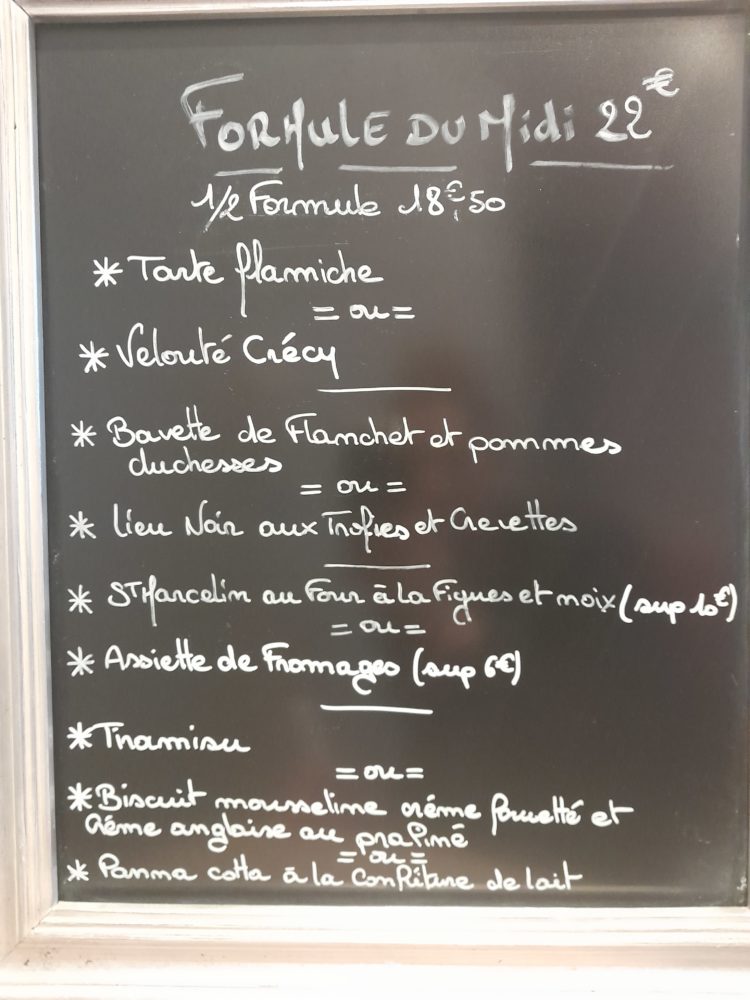 Formule du Midi 22€
1/2 Formule 18€,50
* Tarte flamiche
= ou =
* Velouté Crécy
* Bavette de Flanchet et pommes
duchesses
= ou =
* Lieu Noir aux Trofies et Crevettes
* St Marcelin au Four à la Figues et noix (sup 10€)
= ou =
* Assiette de Fromages (sup 6€)
* Tiramisu
= ou =
* Biscuit mousseline crème fouetté et
Crème anglaise au praliné
= ou =
* Panna cotta à la Confiture de lait